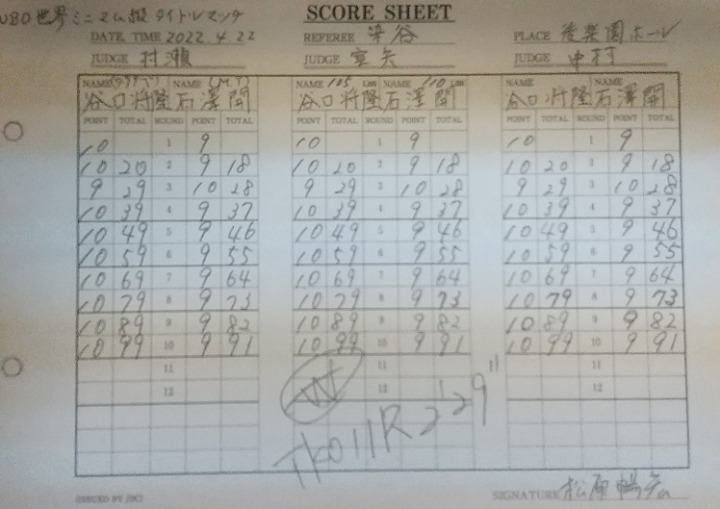 WBO世界ミニマム級タイトルマッチ SCORE SHEET
DATE, TIME 2022.4.22 REFEREE 染谷 PLACE 後楽園ホール
JUDGE 村瀬 JUDGE JUDGE 中村
NAME NAME (M.T) NAME 105 LBS NAME 110 LBS NAME NAME
谷口将隆 石澤開 谷口将隆 石澤開 谷口将隆 石澤開
POINT TOTAL ROUND POINT TOTAL POINT TOTAL ROUND POINT TOTAL POINT TOTAL ROUND POINT TOTAL
10 1 9 10 1 9 10 1 9
10 20 2 9 18 10 20 2 9 18 10 20 2 9 18
9 29 3 10 28 9 29 3 10 28 9 29 3 10 28
10 39 4 9 37 10 39 4 9 37 10 39 4 9 37
10 49 5 9 46 10 49 5 9 46 10 49 5 9 46
10 59 6 9 55 10 59 6 9 55 10 59 6 9 55
10 69 7 9 64 10 69 7 9 64 10 69 7 9 64
10 79 8 9 73 10 79 8 9 73 10 79 8 9 73
10 89 9 9 82 10 89 9 9 82 10 89 9 9 82
10 99 10 9 91 10 99 10 9 91 10 99 10 9 91
11 11 11
12 W 12 12
TKO11R2'29"
ISSUED BY JBC SIGNATURE 松原